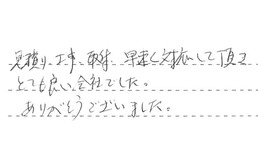 見積り、工事、取付、早速く対応して頂き
とても良い会社でした。
ありがとうございました。